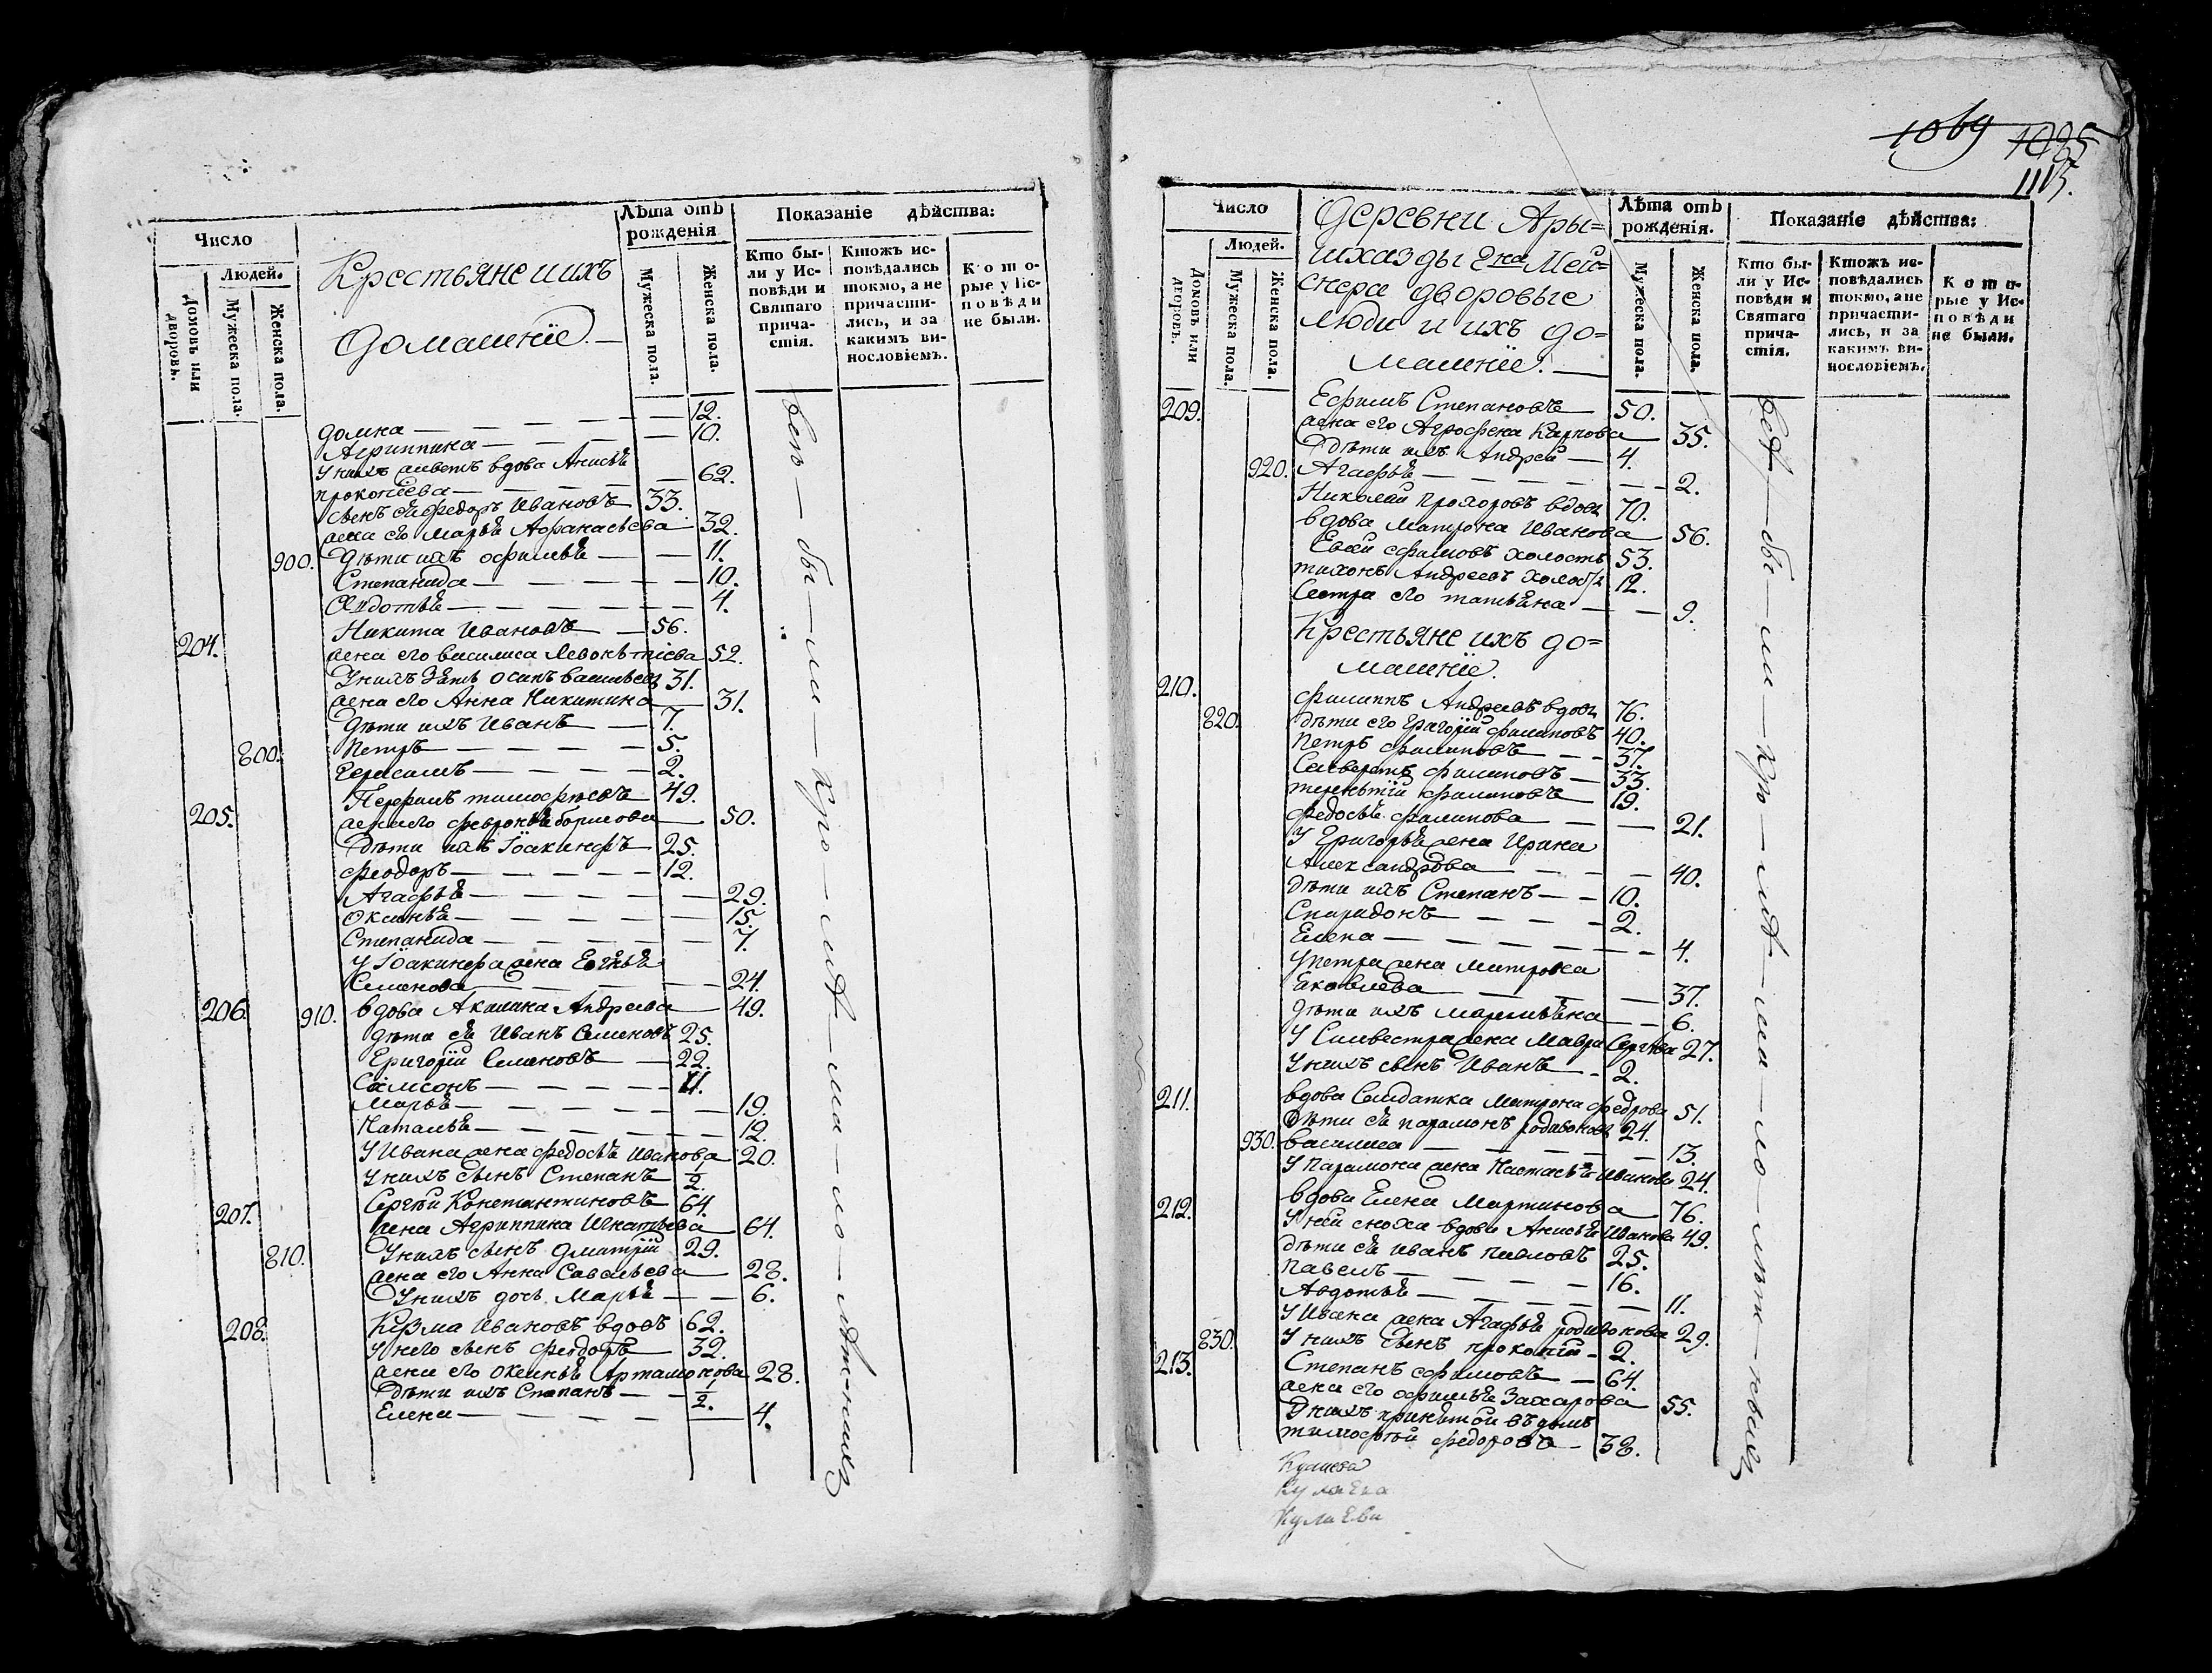 Число
Людей.
Домовъ или дворовъ.
Мужеска пола.
Женска пола.
Крестьяне и ихъ
домашнїе.
Лѣта отъ рожденія
Мужеска пола.
Женска пола.
Показаніе дѣйства:
Кто были у Исповѣди и Святаго причастія.
Ктожъ исповѣдались токмо, а не причастились, и за какимъ винословіемъ.
Которые у Исповѣди не были.
домна — 12.
Агриппина — 10.
У нихъ живетъ вдова Анисья
прокопїева — 62.
сынъ ея федоръ Ивановъ 33.
жена его Марья Афанасьева 32.
900. дѣти ихъ офимья — 11.
Степанида — 10.
Авдотья — 4.
204. Никита Ивановъ — 56.
жена его василиса Левонтиева 52.
У нихъ зять осипъ васильевъ 31.
жена его Анна Никитина 31.
дѣти ихъ Иванъ — 7.
800. Петръ — 5.
Герасимъ — 2.
205. тимофѣевъ 49.
жена его февронья борисова 50.
дѣти ихъ Iоакинфъ 25.
феодоръ — 12.
Агафья — 29.
Оксинья — 15.
Степанида — 7.
У Iоакинфа жена
Семенова — 24.
206. 910. вдова Акилина Андреева 49.
дѣти ея Иванъ Семеновъ 25.
Григорїй Семеновъ — 22.
Самсонъ — 11.
Марья — 19.
Наталья — 12.
У Ивана жена федосья Иванова 20.
У нихъ сынъ Степанъ 1/2.
207. Сергѣй Константиновъ 64.
жена Агриппина Игнатьева 64.
810. У нихъ сынъ дмитрїй 29.
жена его Анна Савельева 28.
У нихъ дочь Марья — 6.
208. Козма Ивановъ вдовъ 62.
У него сынъ феодоръ 32.
жена его Оксинья Артамонова 28.
дѣти ихъ Степанъ — 1/2.
Елена — 4.
1069 1095
1115.
Число
Людей.
Домовъ или дворовъ.
Мужеска пола.
Женска пола.
Деревни Ары=
Мей=
снера дворовые
люди и ихъ до=
машнїе.
Лѣта отъ рожденія.
Мужеска пола.
Женска пола.
Показаніе дѣйства:
Кто были у Исповѣди и Святаго причастія.
Ктожъ исповѣдались токмо, а не причастились, и за какимъ винословіемъ.
Которые у Исповѣди не были.
209. Ефимъ Степановъ 50.
жена его Агрофена Карпова 35.
дѣти ихъ Андрей — 4.
920. Агафья — 2.
Николай Прохоровъ вдовъ 70.
вдова Матрона Иванова 56.
ефимовъ холостъ 53.
тихонъ Андреевъ 12.
Сестра его татьяна — 9.
Крестьяне ихъ до=
машнїе.
210. филиппъ Андреевъ вдовъ 76.
820. дѣти его Григорїй филиповъ 40.
Петръ филиповъ — 37.
филиповъ — 33.
терентїй филиповъ 19.
федосья филипова — 21.
У Григорья жена Ирина
Александрова — 40.
дѣти ихъ Степанъ — 10.
Спиридонъ — 2.
Елена — 4.
У петра жена Матрона
Яковлева — 37.
дѣти ихъ маремьяна — 6.
У Силвестра жена Мавра Сергѣва 27.
У нихъ сынъ Иванъ — 2.
211. вдова Солдатка Матрона федорова 51.
дѣти ея парамонъ родивоновъ 24.
930. василиса — 13.
У Парамона жена Настасья Иванова 24.
212. вдова Елена Мартинова 76.
У ней сноха вдова Анисья Иванова 49.
дѣти ея Иванъ павловъ 25.
павелъ — 16.
Авдотья — 11.
У Ивана жена Агафья родивонова 29.
830. У нихъ сынъ прокопїй — 2.
213. Степанъ ефимовъ — 64.
жена его офимья Захарова 55.
У нихъ принятой въ домъ
тимофей федоровъ — 38.
Кулаева
Кулаева